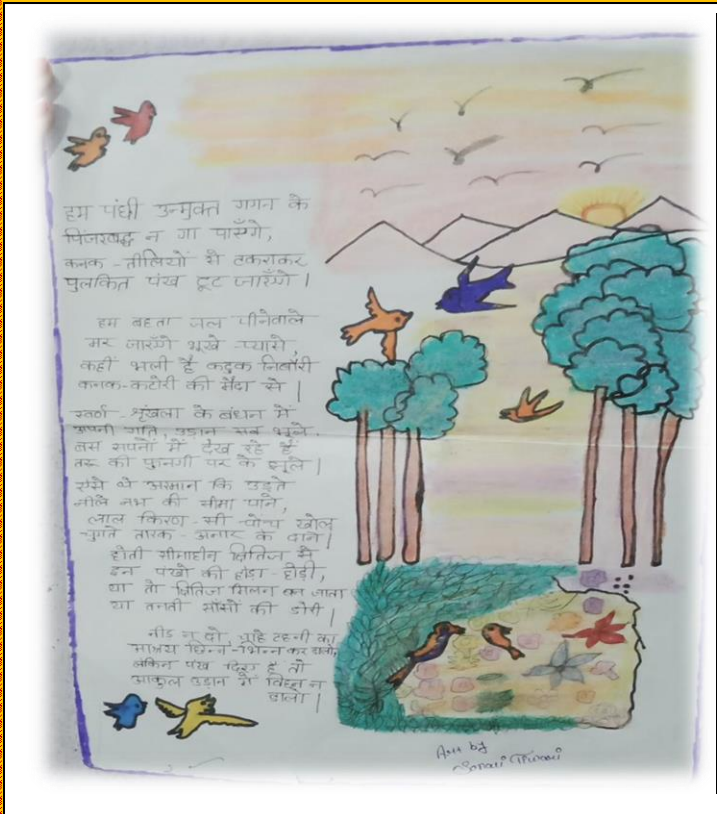 हम पंछी उन्मुक्त गगन के
पिंजरबद्ध न गा पाएँगे,
कनक-तीलियों से टकराकर
पुलकित पंख टूट जाएँगे।
हम बहता जल पीनेवाले
मर जाएँगे भूखे-प्यासे,
कहीं भली है कटुक निबौरी
कनक-कटोरी की मैदा से।
स्वर्ण-श्रृंखला के बंधन में
अपनी गति, उड़ान सब भूले,
बस सपनों में देख रहे हैं
तरू की फुनगी पर के झूले।
ऐसे थे अरमान कि उड़ते
नीले नभ की सीमा पाने,
लाल किरण-सी चोंच खोल
चुगते तारक-अनार के दाने।
होती सीमाहीन क्षितिज से
इन पंखों की होड़ा-होड़ी,
या तो क्षितिज मिलन बन जाता
या तनती साँसों की डोरी।
नीड़ न दो, चाहे टहनी का
आश्रय छिन्न-भिन्न कर डालो,
लेकिन पंख दिए हैं तो
आकुल उड़ान में विघ्न न
डालो।
Art by
Sonali Tiwari